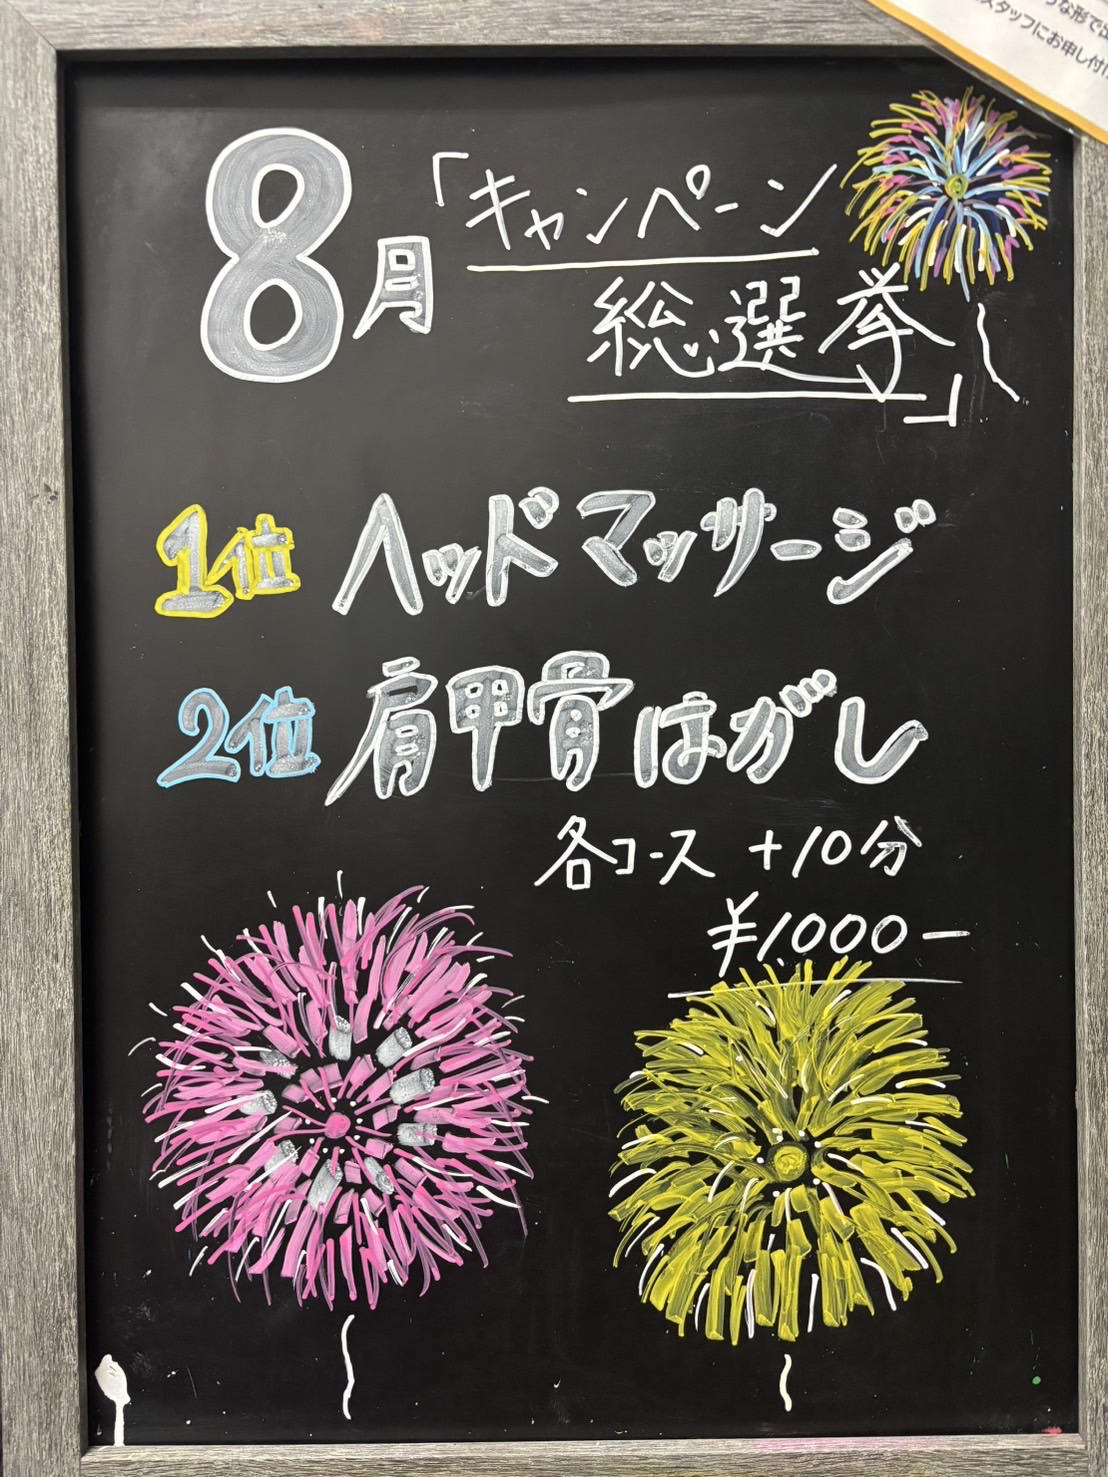 な形で
スタッフにお申し付け
8月「キャンペーン
総選挙」
1位 ヘッドマッサージ
2位 肩甲骨はがし
各コース +10分
¥1,000-